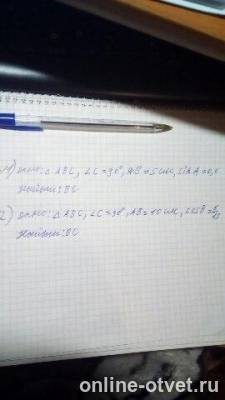 1) дано: △ ABC, ∠C=90°, AB=5см, sin A=0,
Найти: BC
2) дано: △ ABC, ∠C=90°, AB=10см, cos B=
Найти: BC
online-otvet.ru